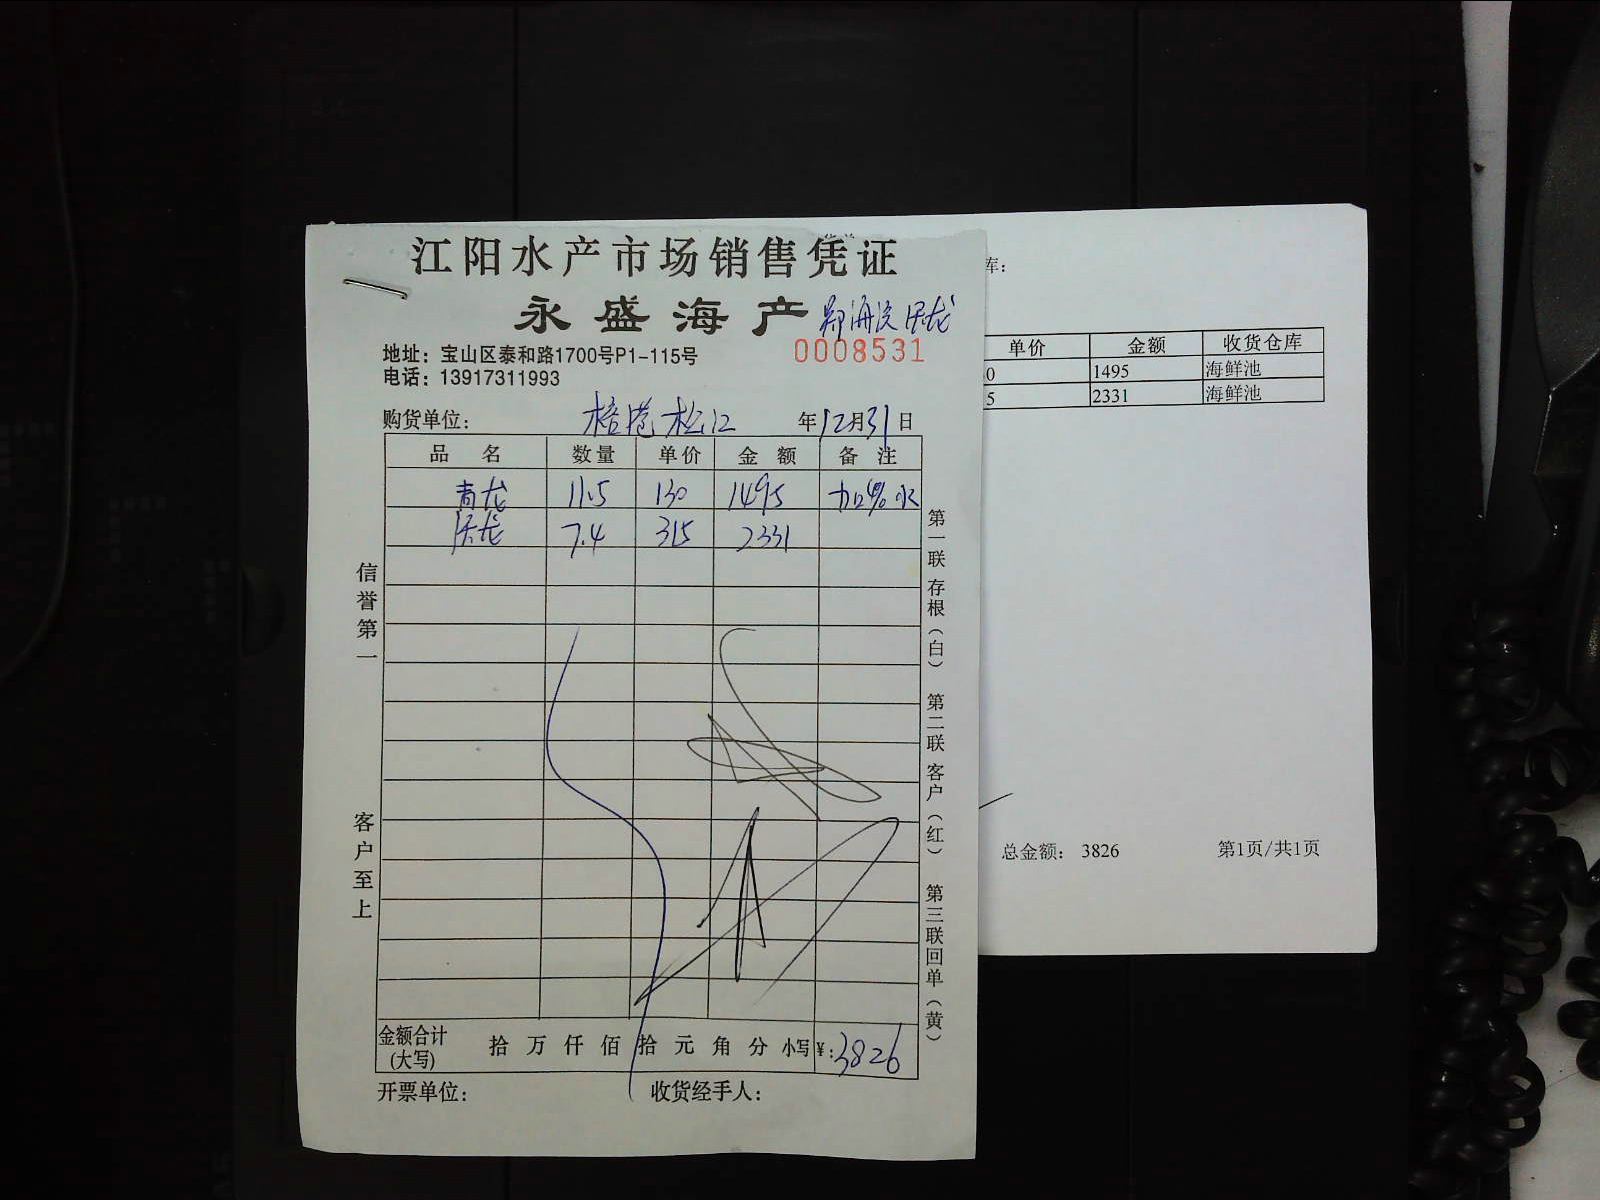 江阳水产市场销售凭证
永盛海产
0008531
地址：宝山区泰和路1700号P1-115号
电话：13917311993
购货单位： 松江 年12月31日
品名 数量 单价 金额 备注
青龙 11.5 130 1495 加4%水
7.4 315 2331
信誉第一
客户至上
第一联 存根（白） 第二联 客户（红） 第三联 回单（黄）
金额合计（大写） 拾 万 仟 佰 拾 元 角 分 小写 ¥：3826
开票单位： 收货经手人：
库：
单价 金额 收货仓库
0 1495 海鲜池
5 2331 海鲜池
总金额： 3826 第1页/共1页